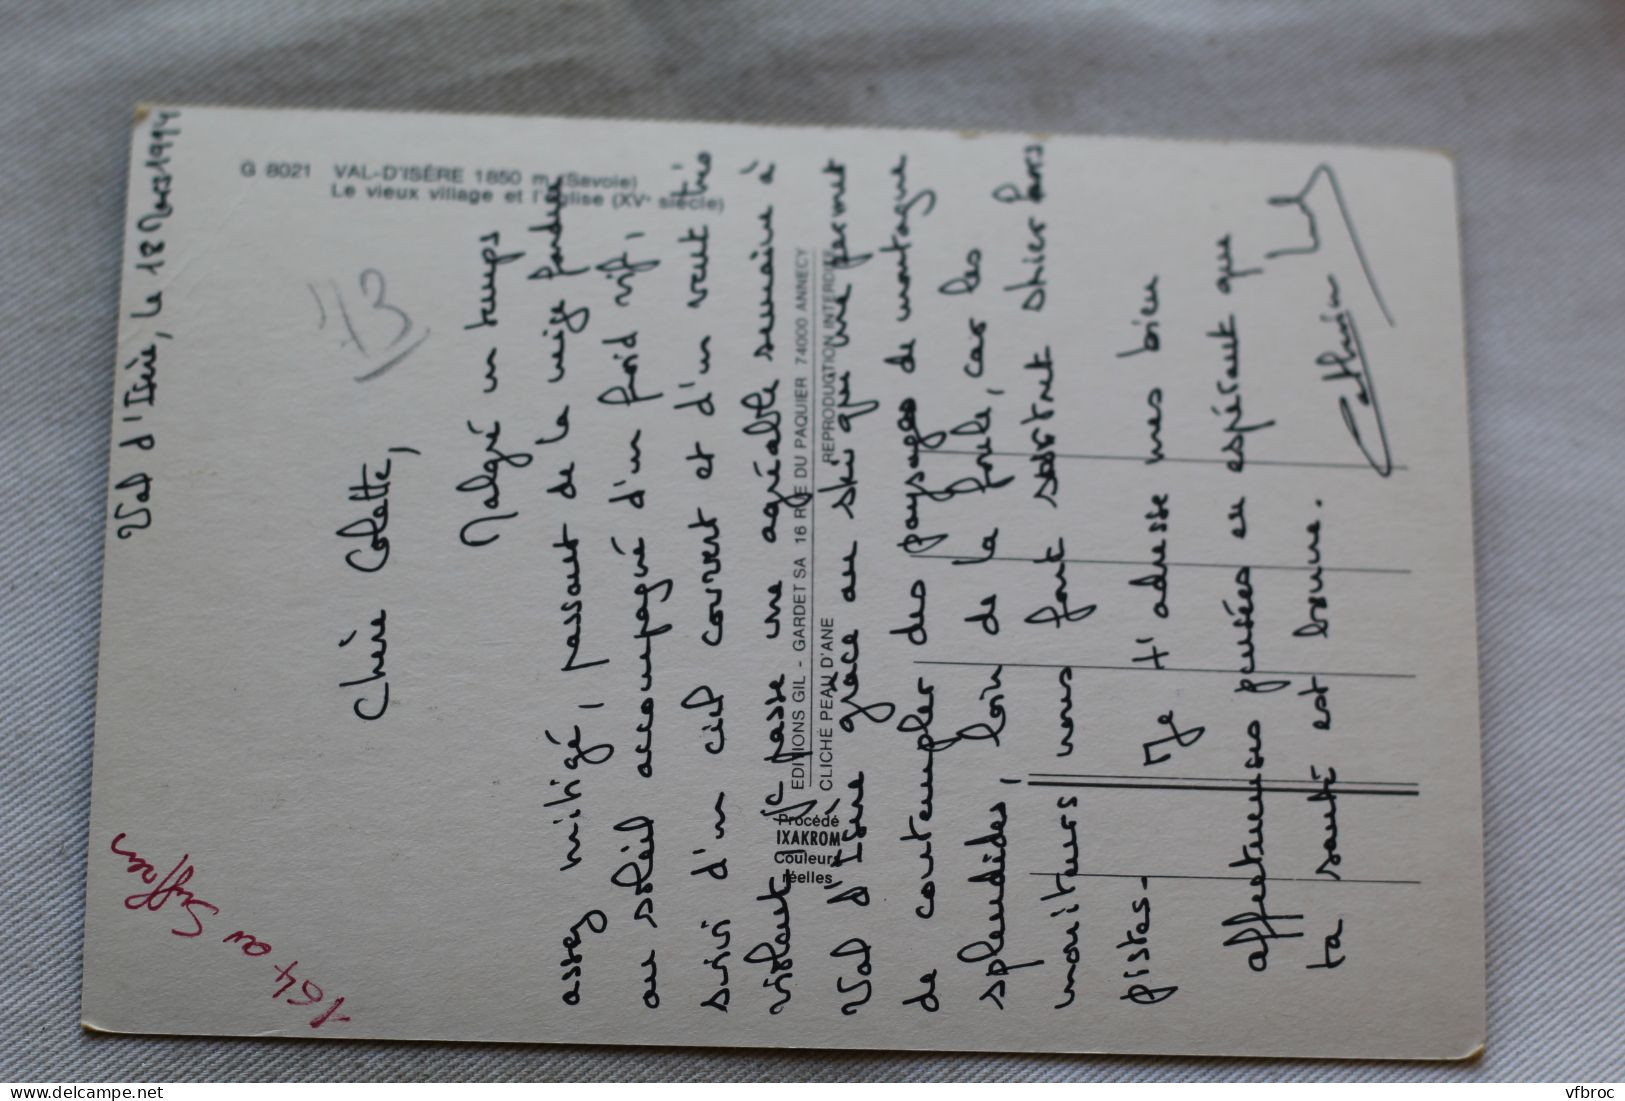 Val d'Isère, le 18 Mars 1994
Chère Colette,
Malgré un temps
assez mitigé, passant de la neige fondue
au soleil accompagné d'un froid vif,
suivi d'un ciel couvert et d'un vent très
violent, je passe une agréable semaine à
Val d'Isère grâce au ski que me permet
de contempler des paysages de montagne
splendides, loin de la foule, car les
moniteurs nous font skier hors
pistes-
Je t'adresse mes bien
affectueuses pensées en espérant que
ta santé est bonne.
Catherine
G 8021 VAL-D'ISÈRE 1850 m (Savoie)
Le vieux village et l'église (XVe siècle)
73
164 av Suffren
EDITIONS GIL - GARDET SA 16 RUE DU PAQUIER 74000 ANNECY
CLICHE PEAU D'ANE REPRODUCTION INTERDITE
Procédé
IXAKROM
Couleurs
réelles
vfbroc